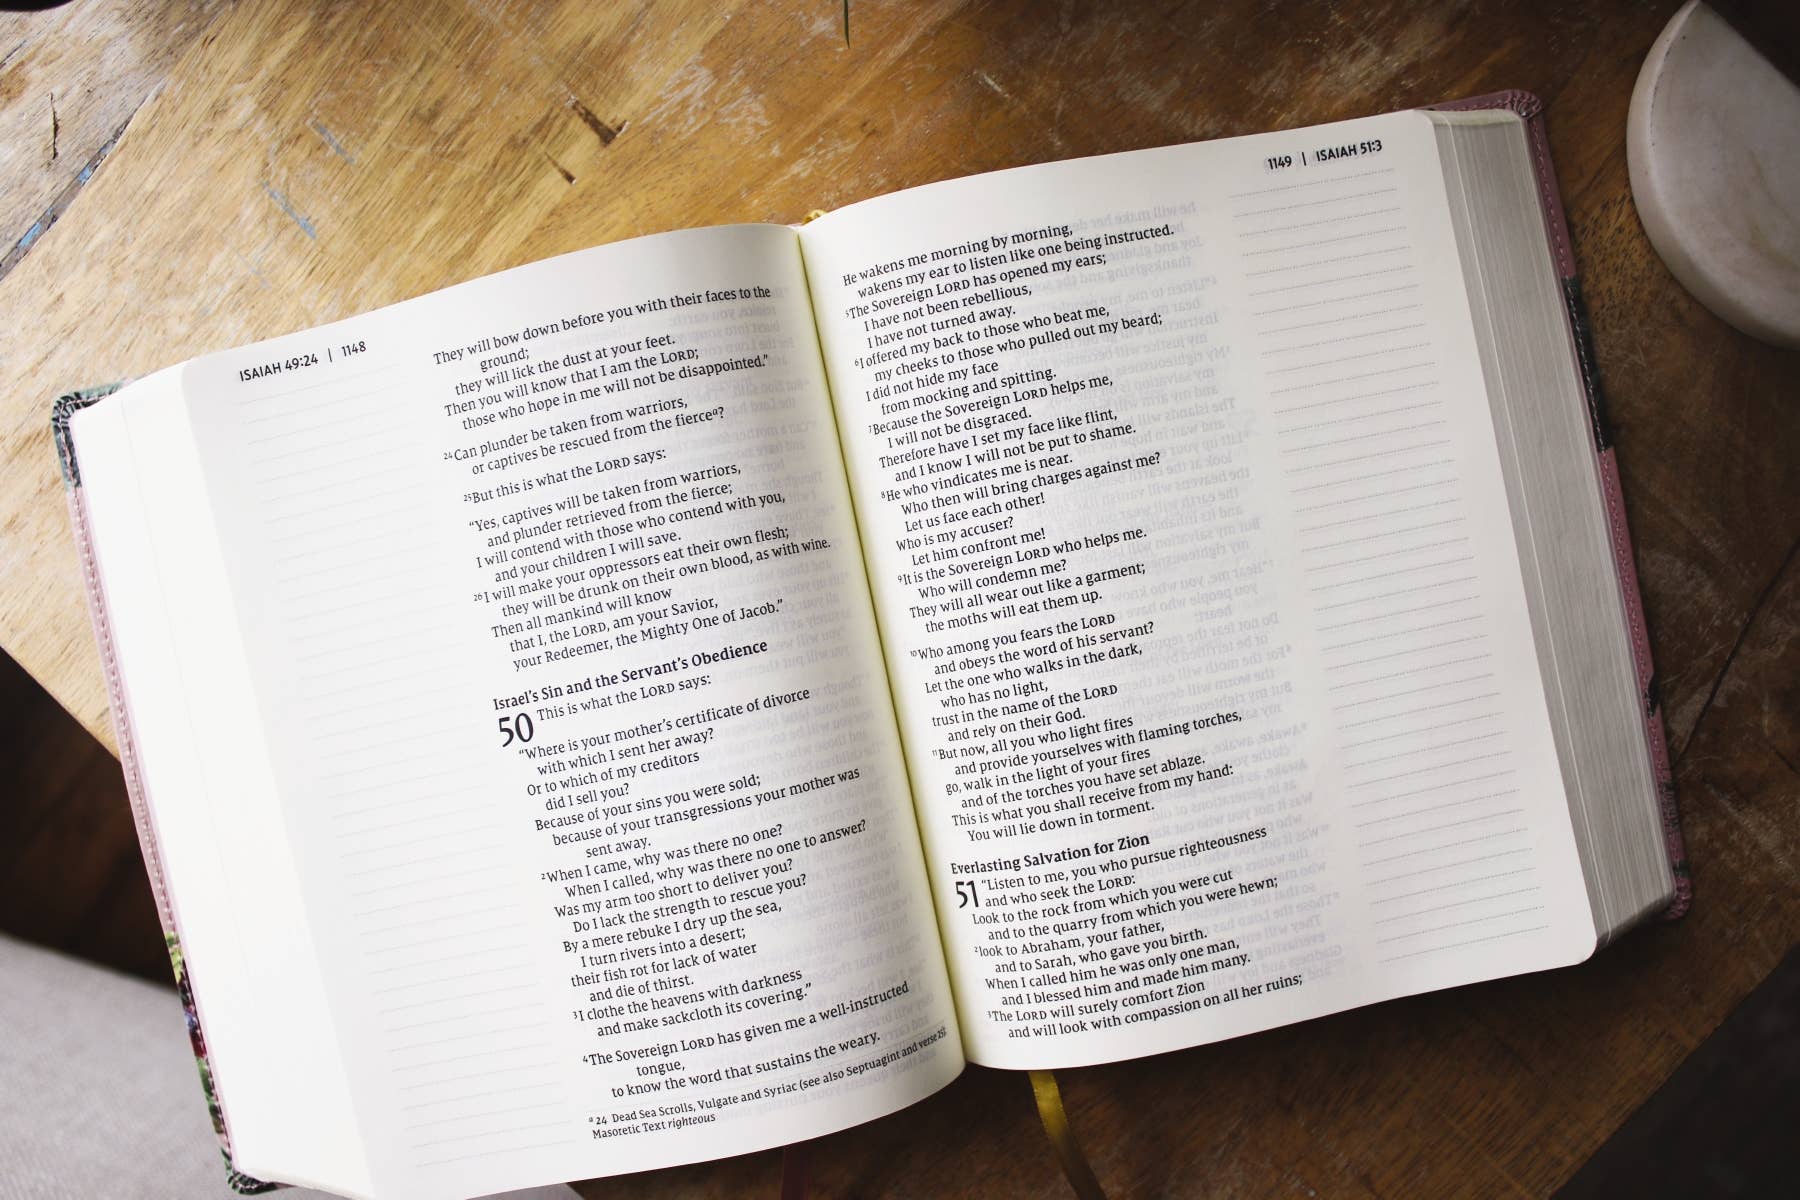 ISAIAH 49:24 | 1148
They will bow down before you with their faces to the
ground;
they will lick the dust at your feet.
Then you will know that I am the LORD;
those who hope in me will not be disappointed.”
24Can plunder be taken from warriors,
or captives be rescued from the fierceᵃ?
25But this is what the LORD says:
“Yes, captives will be taken from warriors,
and plunder retrieved from the fierce;
I will contend with those who contend with you,
and your children I will save.
26I will make your oppressors eat their own flesh;
they will be drunk on their own blood, as with wine.
Then all mankind will know
that I, the LORD, am your Savior,
your Redeemer, the Mighty One of Jacob.”
Israel’s Sin and the Servant’s Obedience
50 This is what the LORD says:
“Where is your mother’s certificate of divorce
with which I sent her away?
Or to which of my creditors
did I sell you?
Because of your sins you were sold;
because of your transgressions your mother was
sent away.
2When I came, why was there no one?
When I called, why was there no one to answer?
Was my arm too short to deliver you?
Do I lack the strength to rescue you?
By a mere rebuke I dry up the sea,
I turn rivers into a desert;
their fish rot for lack of water
and die of thirst.
3I clothe the heavens with darkness
and make sackcloth its covering.”
4The Sovereign LORD has given me a well-instructed
tongue,
to know the word that sustains the weary.
ᵃ 24 Dead Sea Scrolls, Vulgate and Syriac (see also Septuagint and verse 25);
Masoretic Text righteous
1149 | ISAIAH 51:3
He wakens me morning by morning,
wakens my ear to listen like one being instructed.
5The Sovereign LORD has opened my ears;
I have not been rebellious,
I have not turned away.
6I offered my back to those who beat me,
my cheeks to those who pulled out my beard;
I did not hide my face
from mocking and spitting.
7Because the Sovereign LORD helps me,
I will not be disgraced.
Therefore have I set my face like flint,
and I know I will not be put to shame.
8He who vindicates me is near.
Who then will bring charges against me?
Let us face each other!
Who is my accuser?
Let him confront me!
9It is the Sovereign LORD who helps me.
Who will condemn me?
They will all wear out like a garment;
the moths will eat them up.
10Who among you fears the LORD
and obeys the word of his servant?
Let the one who walks in the dark,
who has no light,
trust in the name of the LORD
and rely on their God.
11But now, all you who light fires
and provide yourselves with flaming torches,
go, walk in the light of your fires
and of the torches you have set ablaze.
This is what you shall receive from my hand:
You will lie down in torment.
Everlasting Salvation for Zion
51 “Listen to me, you who pursue righteousness
and who seek the LORD:
Look to the rock from which you were cut
and to the quarry from which you were hewn;
2look to Abraham, your father,
and to Sarah, who gave you birth.
When I called him he was only one man,
and I blessed him and made him many.
3The LORD will surely comfort Zion
and will look with compassion on all her ruins;